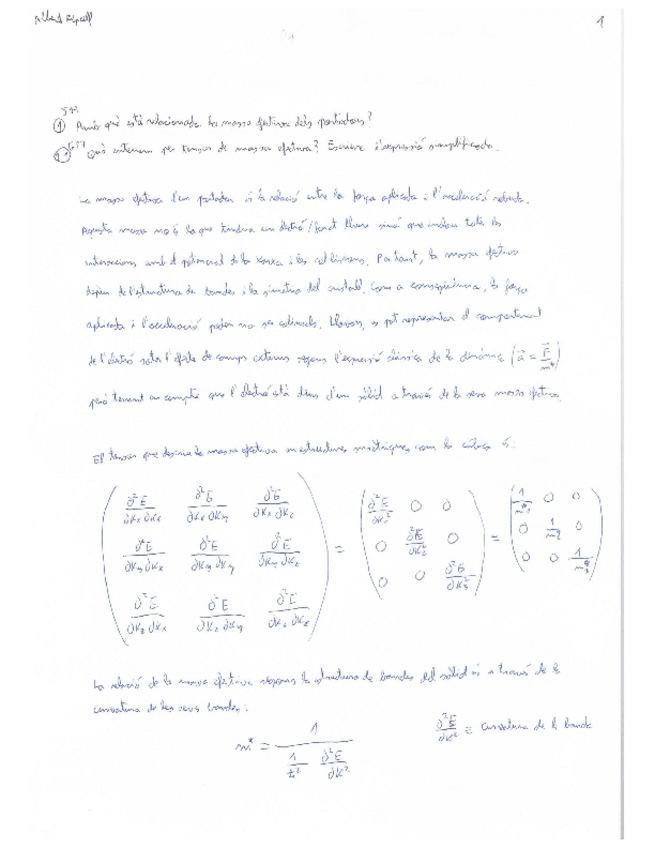 1
① Amb què està relacionada la massa efectiva dels portadors?
Què entenem per tensor de massa efectiva? Escriure l'expressió simplificada.
La massa efectiva d'un portador és la relació entre la força aplicada i l'acceleració rebuda.
Aquesta massa no és la que tindria un electró/forat lliure sinó que inclou totes les
interaccions amb el potencial de la xarxa i les col·lisions. Per tant, la massa efectiva
depèn de l'estructura de bandes i la simetria del cristall. Com a conseqüència, la força
aplicada i l'acceleració poden no ser colineals. Llavors, es pot representar el comportament
de l'electró sota l'efecte de camps externs segons l'expressió clàssica de la dinàmica (a⃗ = F⃗/m*)
però tenint en compte que l'electró està dins d'un sòlid a través de la seva massa efectiva.
El tensor que descriu la massa efectiva en estructures simètriques com la cúbica és:
∂²E/∂Kx∂Kx ∂²E/∂Kx∂Ky ∂²E/∂Kx∂Kz ∂²E/∂K₁² 0 0 1/m₁* 0 0
∂²E/∂Ky∂Kx ∂²E/∂Ky∂Ky ∂²E/∂Ky∂Kz = 0 ∂²E/∂K₂² 0 = 0 1/m₂* 0
∂²E/∂Kz∂Kx ∂²E/∂Kz∂Ky ∂²E/∂Kz∂Kz 0 0 ∂²E/∂K₃² 0 0 1/m₃*
La relació de la massa efectiva respecte la estructura de bandes del sòlid és a través de la
curvatura de les seves bandes:
m* = 1 / (1/ħ² ∂²E/∂K²) ∂²E/∂K² ≡ Curvatura de la banda